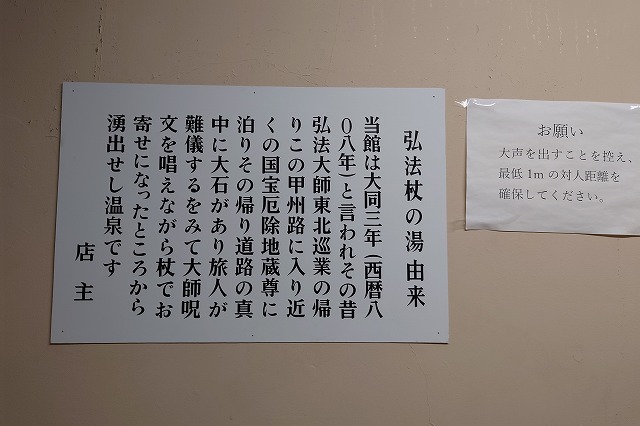 弘法杖の湯 由来
当館は大同三年(西暦八
〇八年)と言われその昔
弘法大師東北巡業の帰
りこの甲州路に入り近
くの国宝厄除地蔵尊に
泊りその帰り道路の真
中に大石があり旅人が
難儀するをみて大師呪
文を唱えながら杖でお
寄せになったところから
湧出せし温泉です
店主
お願い
大声を出すことを控え、
最低 1m の対人距離を
確保してください。